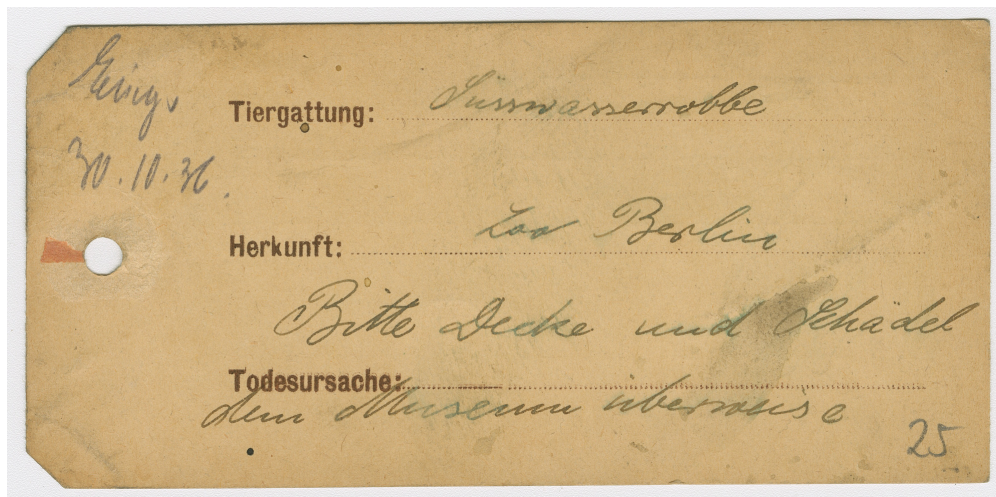 Eing.
30.10.36.
Tiergattung: Süsswasserrobbe
Herkunft: Zoo Berlin
Bitte Decke und Schädel
Todesursache:
dem Museum überweise
25